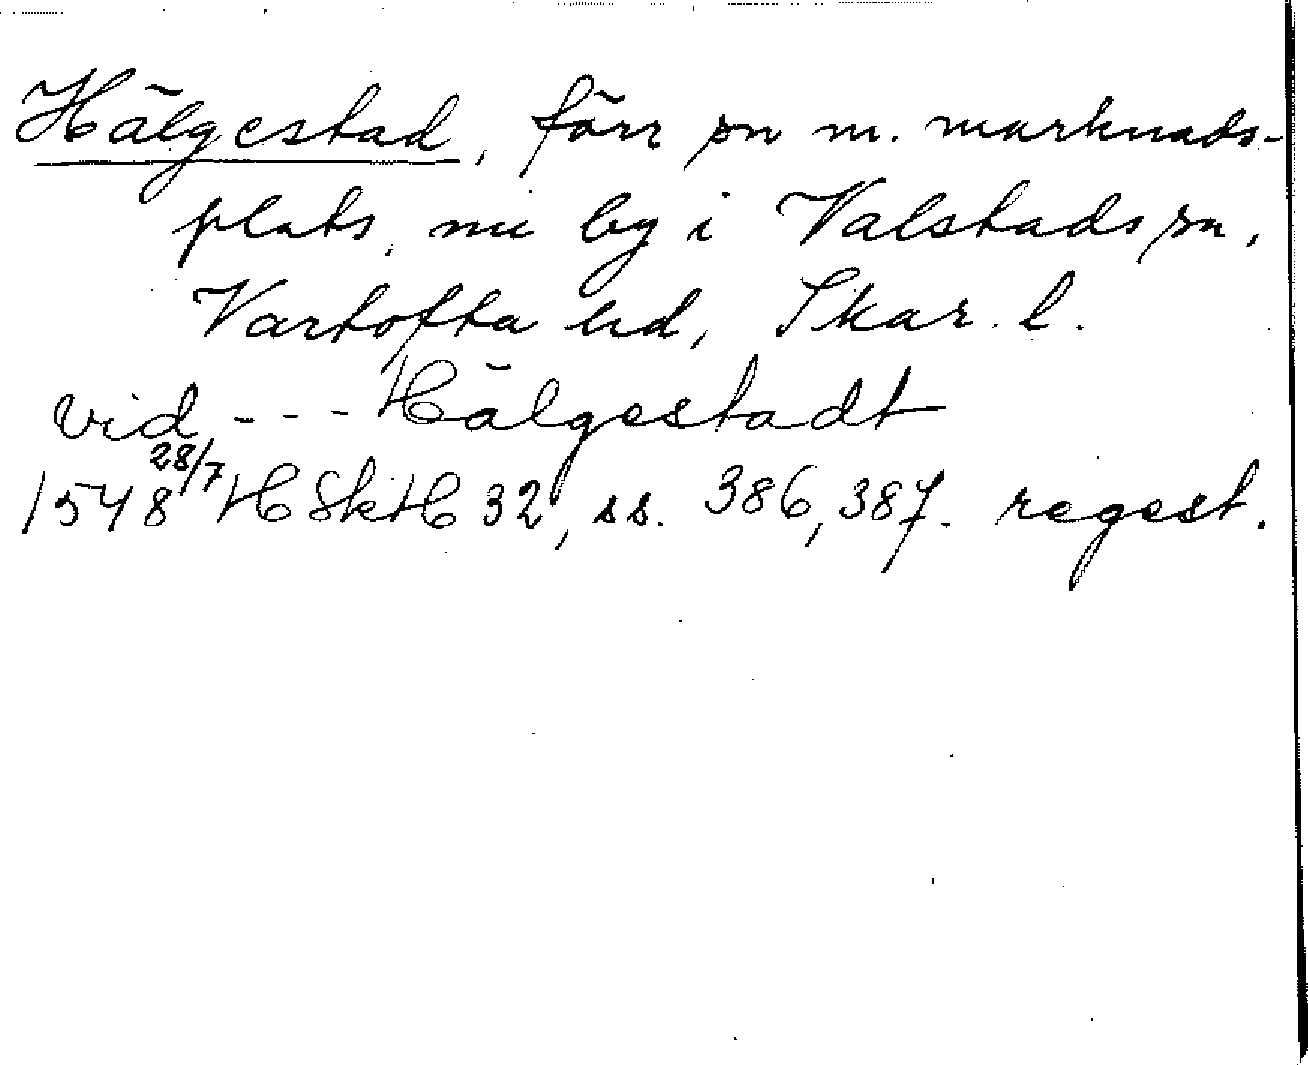 Hälgestad, förr sn m. marknads-
plats, nu by i Valstads sn,
Vartofta hd, Skar. l.
vid --- Hälgestadt
1548 28/7 HSkH 32, ss. 386, 387. regest.